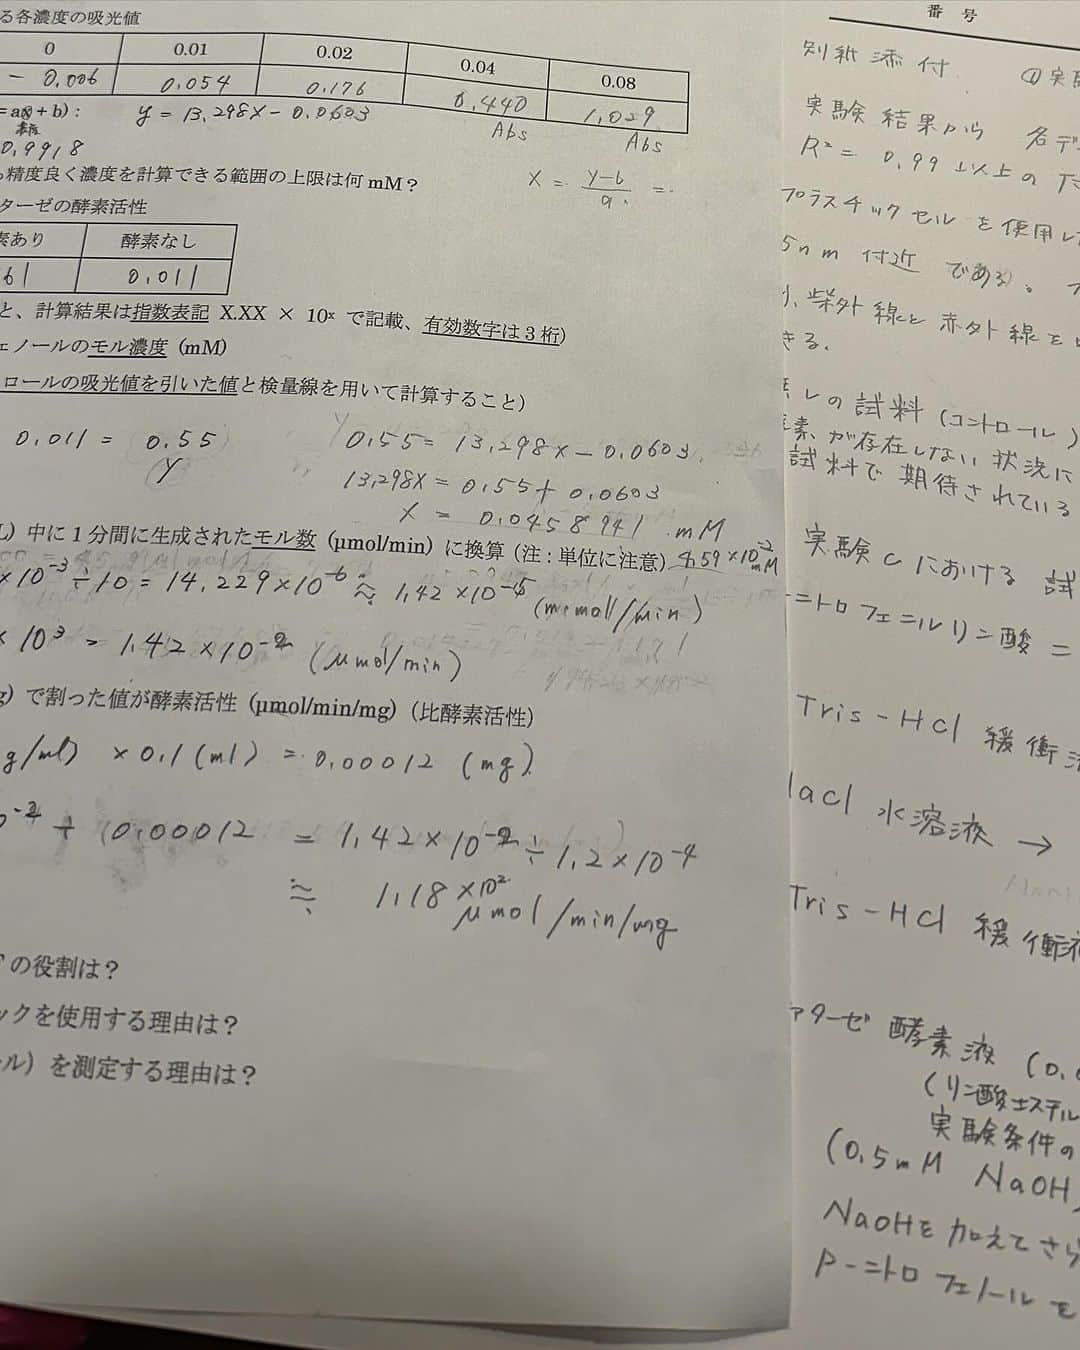 る各濃度の吸光値
0 0.01 0.02 0.04 0.08
- 0.006 0.054 0.176 0.440 1.029
Abs Abs
+ b) : y = 13.298x - 0.0603
0.9918
精度良く濃度を計算できる範囲の上限は何 mM？
x = y-b / a =
ターゼの酵素活性
素あり 酵素なし
61 0.011
と、計算結果は指数表記 X.XX × 10ˣ で記載、有効数字は 3 桁)
ェノールのモル濃度 (mM)
ロールの吸光値を引いた値と検量線を用いて計算すること)
0.011 = 0.55
y
0.55 = 13.298x - 0.0603
13.298x = 0.55 + 0.0603
x = 0.0458941 mM
4.59 × 10⁻² mM
L) 中に 1 分間に生成されたモル数 (μmol/min) に換算 (注 : 単位に注意)
× 10⁻³ ÷ 10 = 14.229 × 10⁻⁶ ≒ 1.42 × 10⁻⁵ (mmol/min)
× 10³ = 1.42 × 10⁻² (μmol/min)
g) で割った値が酵素活性 (μmol/min/mg) (比酵素活性)
g/ml) × 0.1 (ml) = 0.00012 (mg)
÷ (0.00012 = 1.42 × 10⁻² ÷ 1.2 × 10⁻⁴
≒ 1.18 × 10²
μmol/min/mg
の役割は？
ックを使用する理由は？
ール) を測定する理由は？
番 号
別紙添付 ①実
実験結果から 各デ
R² = 0.99 以上の
プラスチックセルを使用し
5nm 付近 である。
、紫外線と赤外線を
きる。
しの試料 (コントロール)
素が存在しない状況に
試料で期待されている
実験 C における 試
ニトロフェニルリン酸 =
Tris-HCl 緩衝
aCl 水溶液 →
Tris-HCl 緩衝液
ァターゼ 酵素液 (0.
(リン酸エステル
実験条件の
(0.5mM NaOH
NaOHを加えてさら
P-ニトロフェノールを